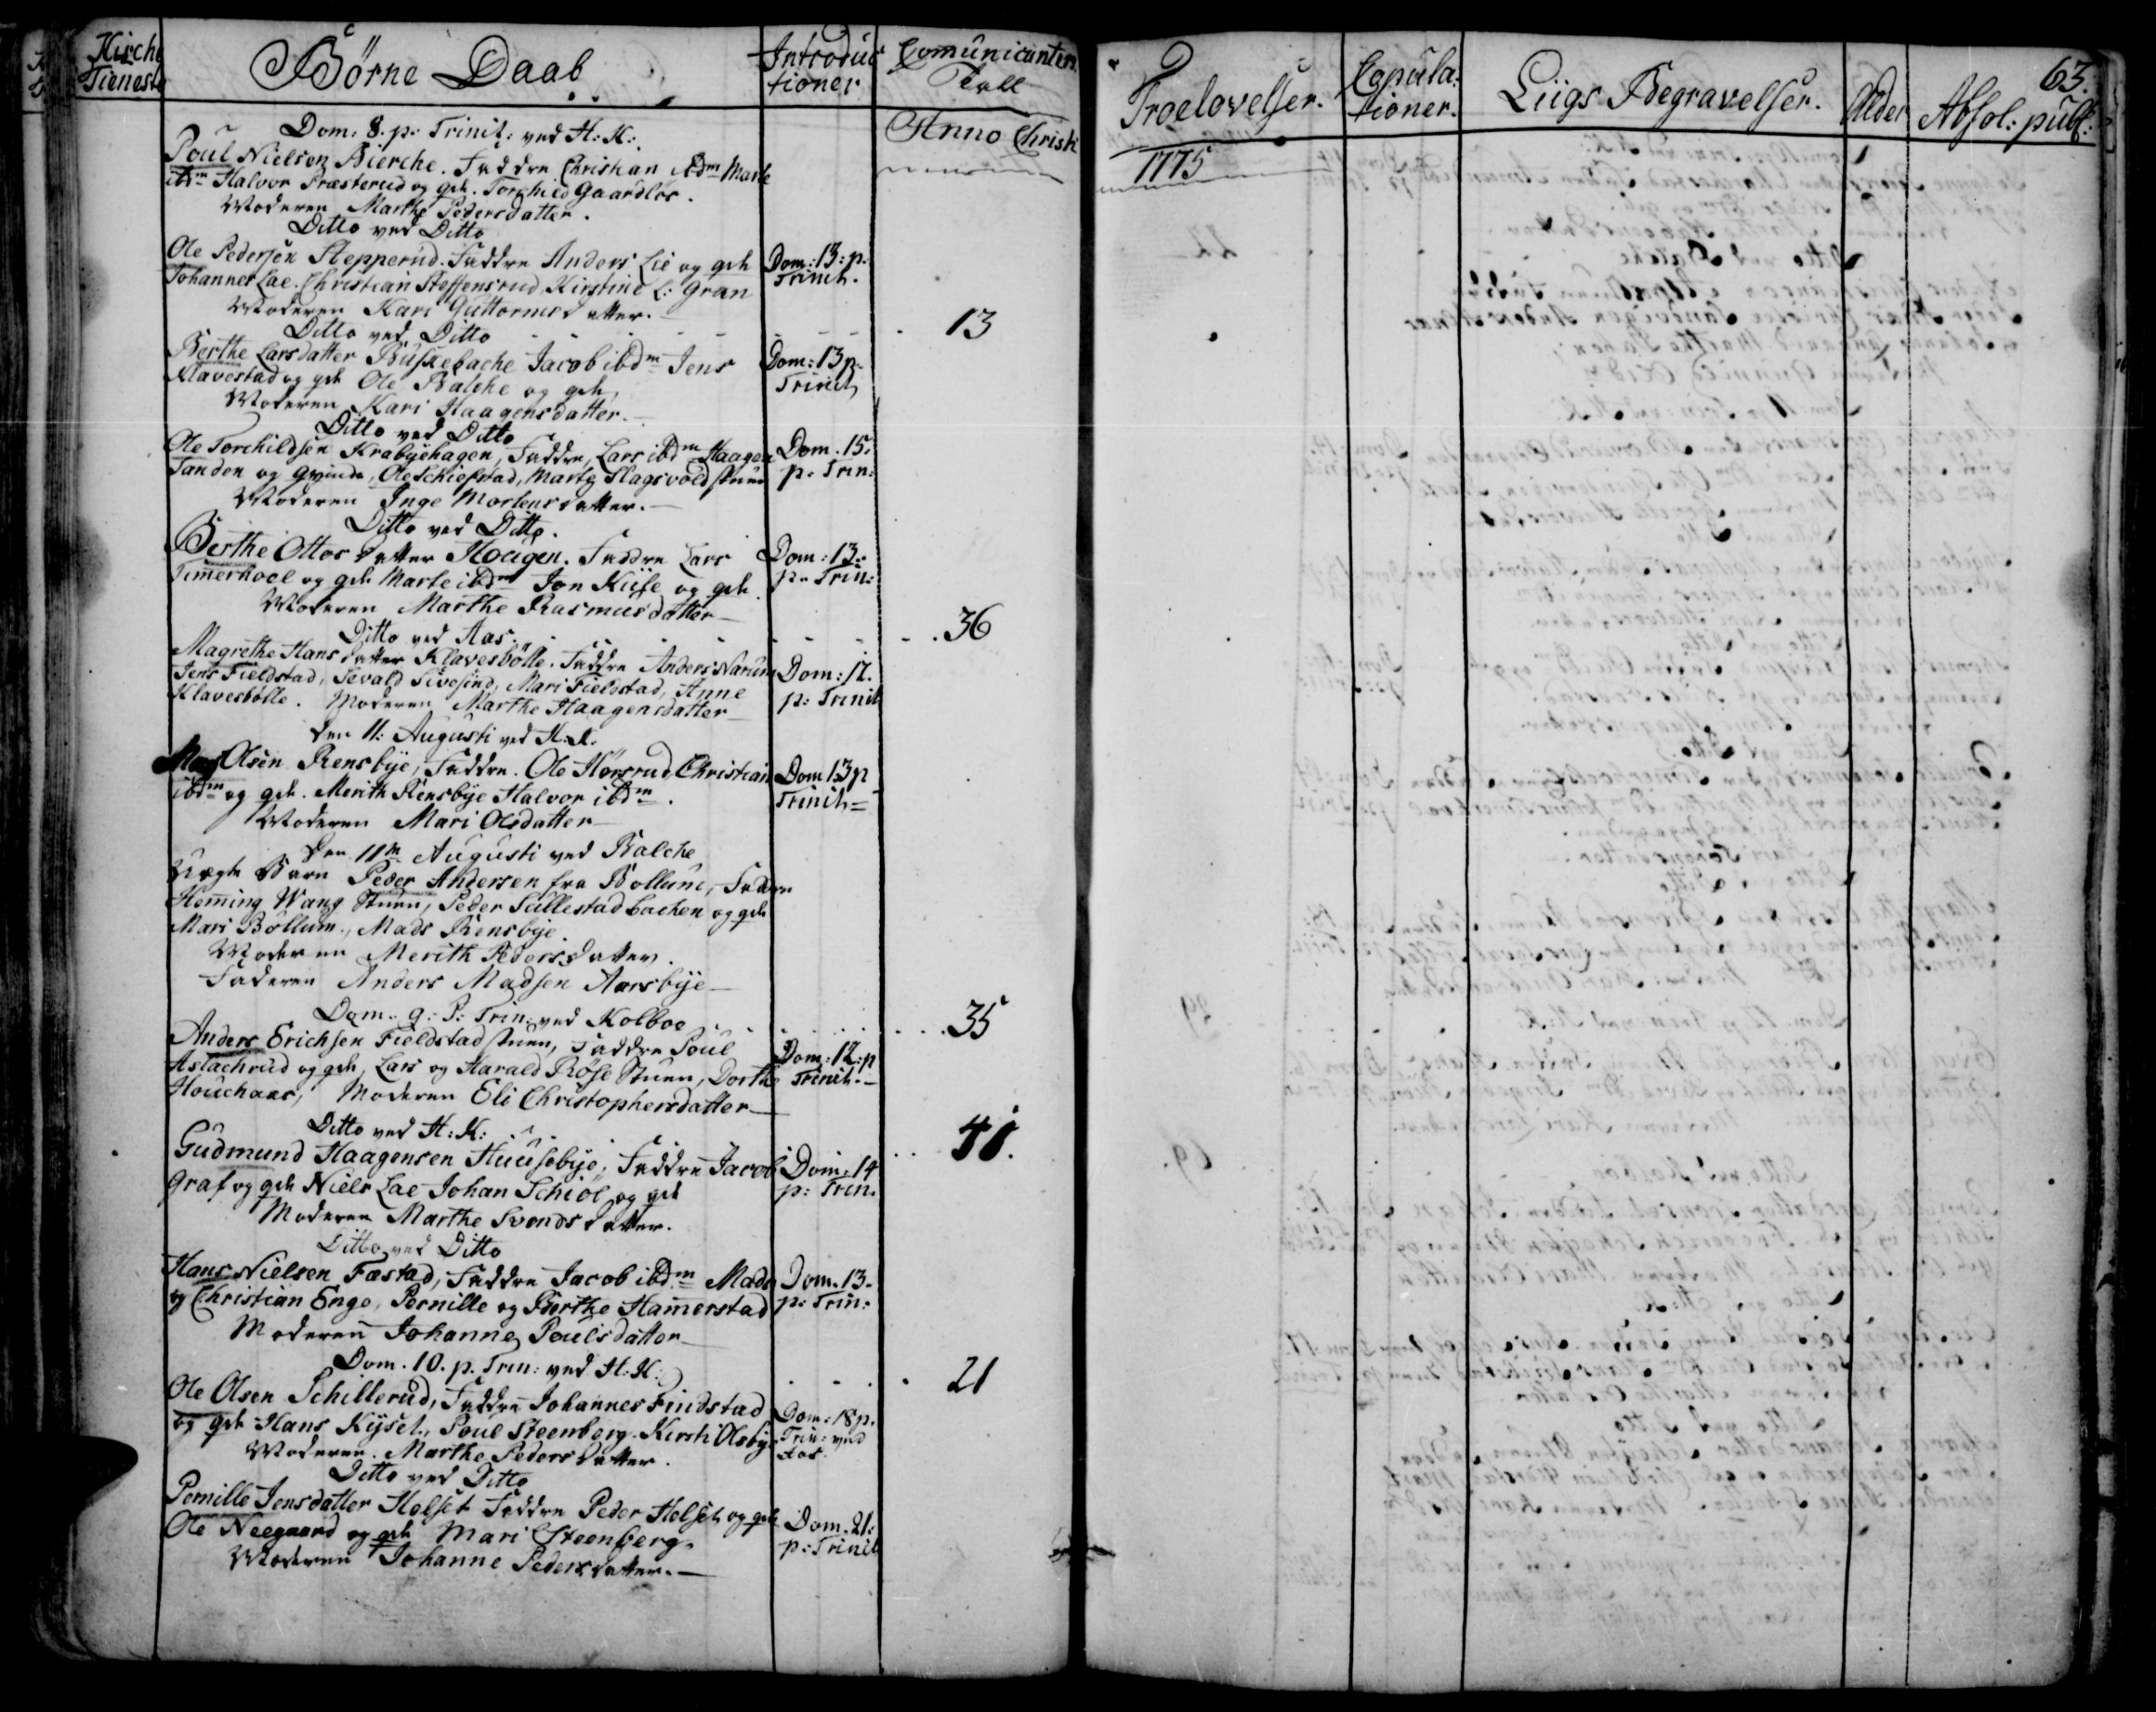 Kirche Tieneste
Börne Daab
Introduc tioner
Comunicanters Tall
Anno Christi
Dom: 8. p: Trinit: ved H: K:
Poul Nielsen Bierche. Faddre Christian ibdm Marte
ibdm Halvor Præsterud og qde. Torchild Gaardlös.
Moderen Marthe Pedersdatter.
Ditto ved Ditto
Ole Pedersen Slepperud. Faddre Anders Lie og qde
Dom: 13: p.
Johannes Lae. Christian Steffensrud, Kirstine L: Gran
Trinit.
Moderen Kari Guttormsdatter.
Ditto ved Ditto
13
Berthe Larsdatter Buskebache Jacob ibdm Jens
Dom: 13 p.
Klavestad og qde Ole Balche og qde,
Trinit
Moderen Kari Haagensdatter.
Ditto ved Ditto
Ole Torchildsen Krabyehagen, Faddre, Lars ibdm Haagen
Dom. 15.
Tanden og qvinde, Ole Schiefstad, Marte Slagsvold stuen
p. Trin:
Moderen Inge Mortensdatter.
Ditto ved Ditto.
Berthe Ottosdatter Hougen. Faddre Lars
Dom: 13:
Timerhoel og qde Marte ibdm Jon Kiise og qde
p. Trin:
Moderen Marthe Rasmusdatter
Ditto ved Aas.
36
Magrethe Hansdatter Klavesbölle. Faddre Anders Narum
Dom: 12.
Jens Fieldstad, Sevald Sivesind, Mari Fieldstad, Anne
Klavesbölle. Moderen Marthe Haagensdatter
p: Trinit
den 11: Augusti ved H: K.
Olsen Rensbye, Faddre. Ole Horsrud Christian
Dom 13 p
ibdm og qde. Merith Rensbye Halvor ibdm.
Trinit
Moderen Mari Olsdatter
Den 11te Augusti ved Balche
Uægte Barn Peder Andersen fra Bollum, Faddre
Heming Wang Stuen, Peder Sullestad bachen og qde
Mari Bollum, Mads Rensbye.
Moderen Merith Pedersdatter.
Faderen Anders Madsen Aarsbye
Dom. 9: P: Trin: ved Kolboe
35
Anders Erichsen Fieldstad stuen, Faddre Poul
Dom: 12: p
Aslachrud og qde, Lars og Harald Röise Stuen, Dorthe
Trinit.
Houchaas, Moderen Eli Christophersdatter
Ditto ved H: K:
41.
Gudmund Haagensen Huusebye, Faddre Jacob
Dom: 14
Graf og qde Niels Lae Johan Schiöl og qde
p: Trin.
Moderen Marthe Svendsdatter.
Ditto ved Ditto
Hans Nielsen Fæstad, Faddre Jacob ibdm Mads
Dom. 13.
og Christian Enge, Pernille og Berthe Hamerstad
p: Trin:
Moderen Johanne Poulsdatter
Dom. 10. p. Trin: ved H: K:
21
Ole Olsen Schillerud, Faddre Johannes Findstad
Dom: 18 p.
og qde Hans Kijset, Poul Steenberg. Kirsti Olsbye
Trin: ved
Moderen. Marthe Pedersdatter.
Aas.
Ditto ved Ditto
Pernille Jensdatter Holset Faddre Peder Holset og qde
Dom. 21:
Ole Neegaard og qde Mari Steenberg.
p: Trinit
Moderen Johanne Pedersdatter.
Troelovelser.
Copula: tioner.
Liigs Begravelser.
Alder
Absol: publ:
63.
1775